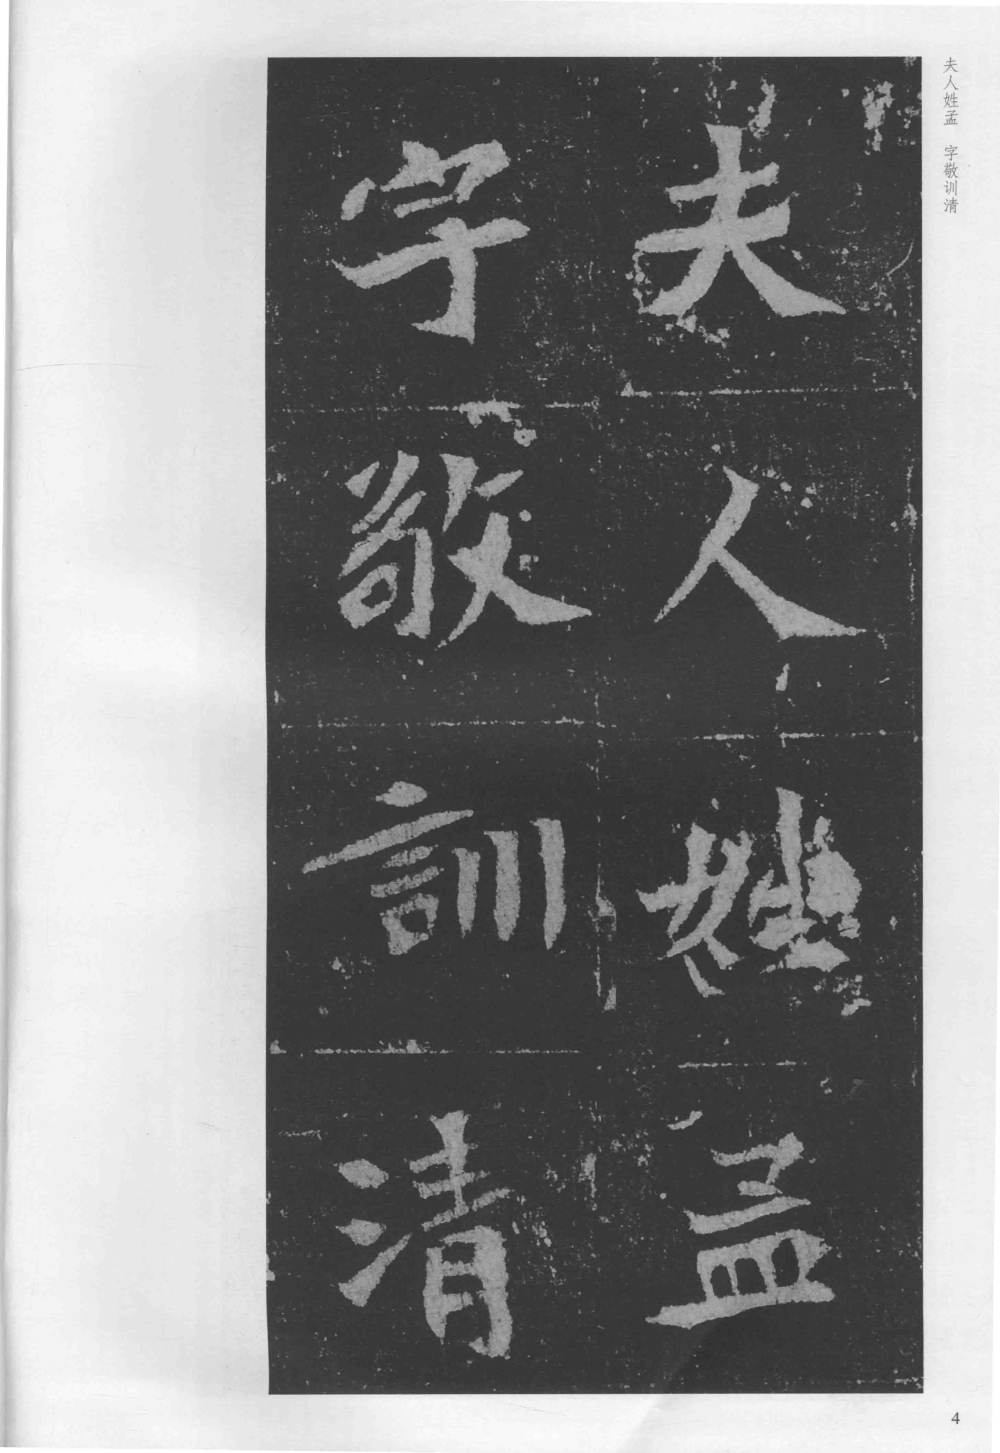 夫人姓孟　字敬训清
夫人姓孟
字敬訓清
4